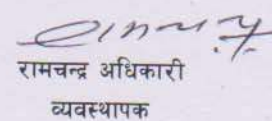 रामचन्द्र अधिकारी
व्यवस्थापक